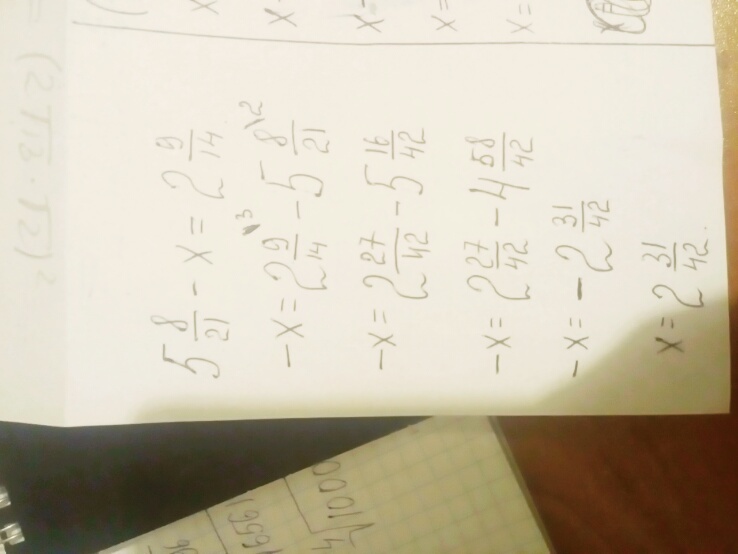 5 8/21 - x = 2 9/14
-x = 2 9/14 \3 - 5 8/21 \2
-x = 2 27/42 - 5 16/42
-x = 2 27/42 - 4 58/42
-x = - 2 31/42
x = 2 31/42.
x
x
x -
x =
x =
= (2√13 · √2)²
6561
∜1000